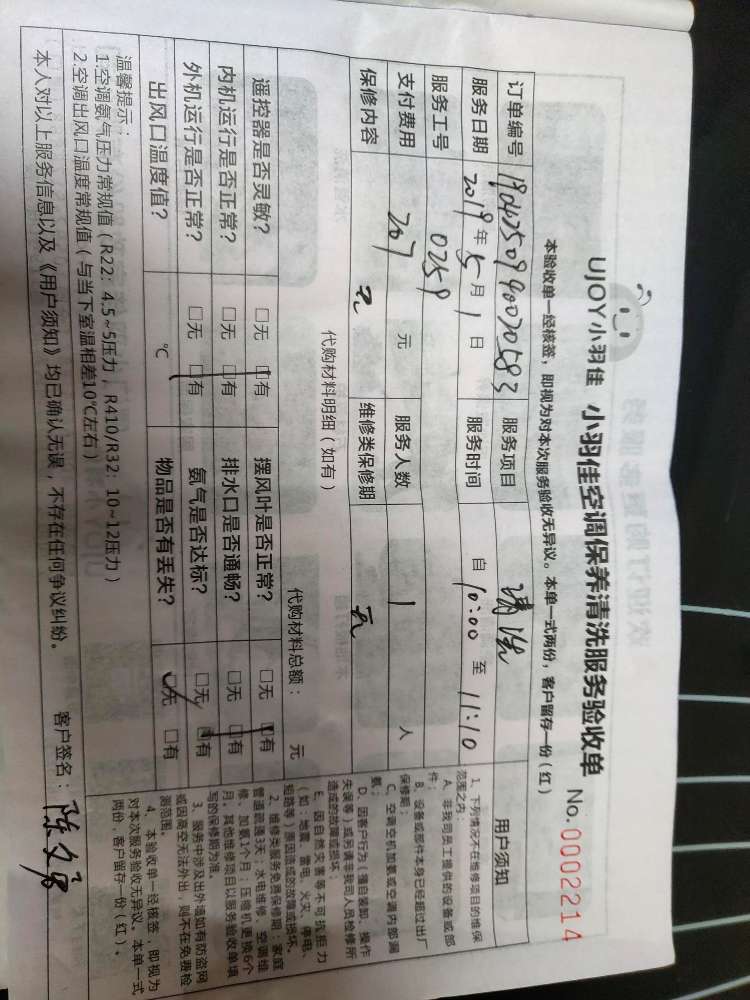 UJOY小羽佳 小羽佳空调保养清洗服务验收单 No.0002214
本验收单一经核签，即视为对本次服务验收无异议。本单一式两份，客户留存一份（红）
订单编号 服务项目 清洗
服务日期 2019年5月1日 服务时间 自10:00至11:10
服务工号 0259
支付费用 207 元 服务人数 1 人
保修内容 无 维修类保修期 无
代购材料明细（如有） 代购材料总额： 元
遥控器是否灵敏？ □无 □有 摆风叶是否正常？ □无 □有
内机运行是否正常？ □无 □有 排水口是否通畅？ □无 □有
外机运行是否正常？ □无 □有 氨气是否达标？ □无 □有
出风口温度值？ ℃ 物品是否有丢失？ □无 □有
温馨提示：
1.空调氨气压力常规值（R22：4.5~5压力，R410/R32：10~12压力）
2.空调出风口温度常规值（与当下室温相差10℃左右）
本人对以上服务信息以及《用户须知》均已确认无误，不存在任何争议纠纷。 客户签名：
用户须知
1、下列情况不在维修项目的维保
范围之内：
A、非我司员工提供的设备或部
件；
B、设备或部件本身已经超过出厂
保修期；
C、空调空机加氨或空调内部漏
氨；
D、因客户行为（擅自装卸、操作
失误等）或另请非我司人员检修所
造成的故障或损坏；
E、因自然灾害等不可抗拒力
（如：地震、雷电、火灾、停电、
短路等）原因造成的故障或损坏。
2、维修类服务免费保修期：家庭
管道疏通3天；水电维修、空调维
修、加氨1个月；压缩机更换6个
月。其他维修项目以服务验收单填
写的保修期为准。
3、服务中涉及出外墙如有防盗网
或因高空无法外出，则不在免费检
测范围。
4、本验收单一经核签，即视为
对本次服务验收无异议。本单一式
两份，客户留存一份（红）。